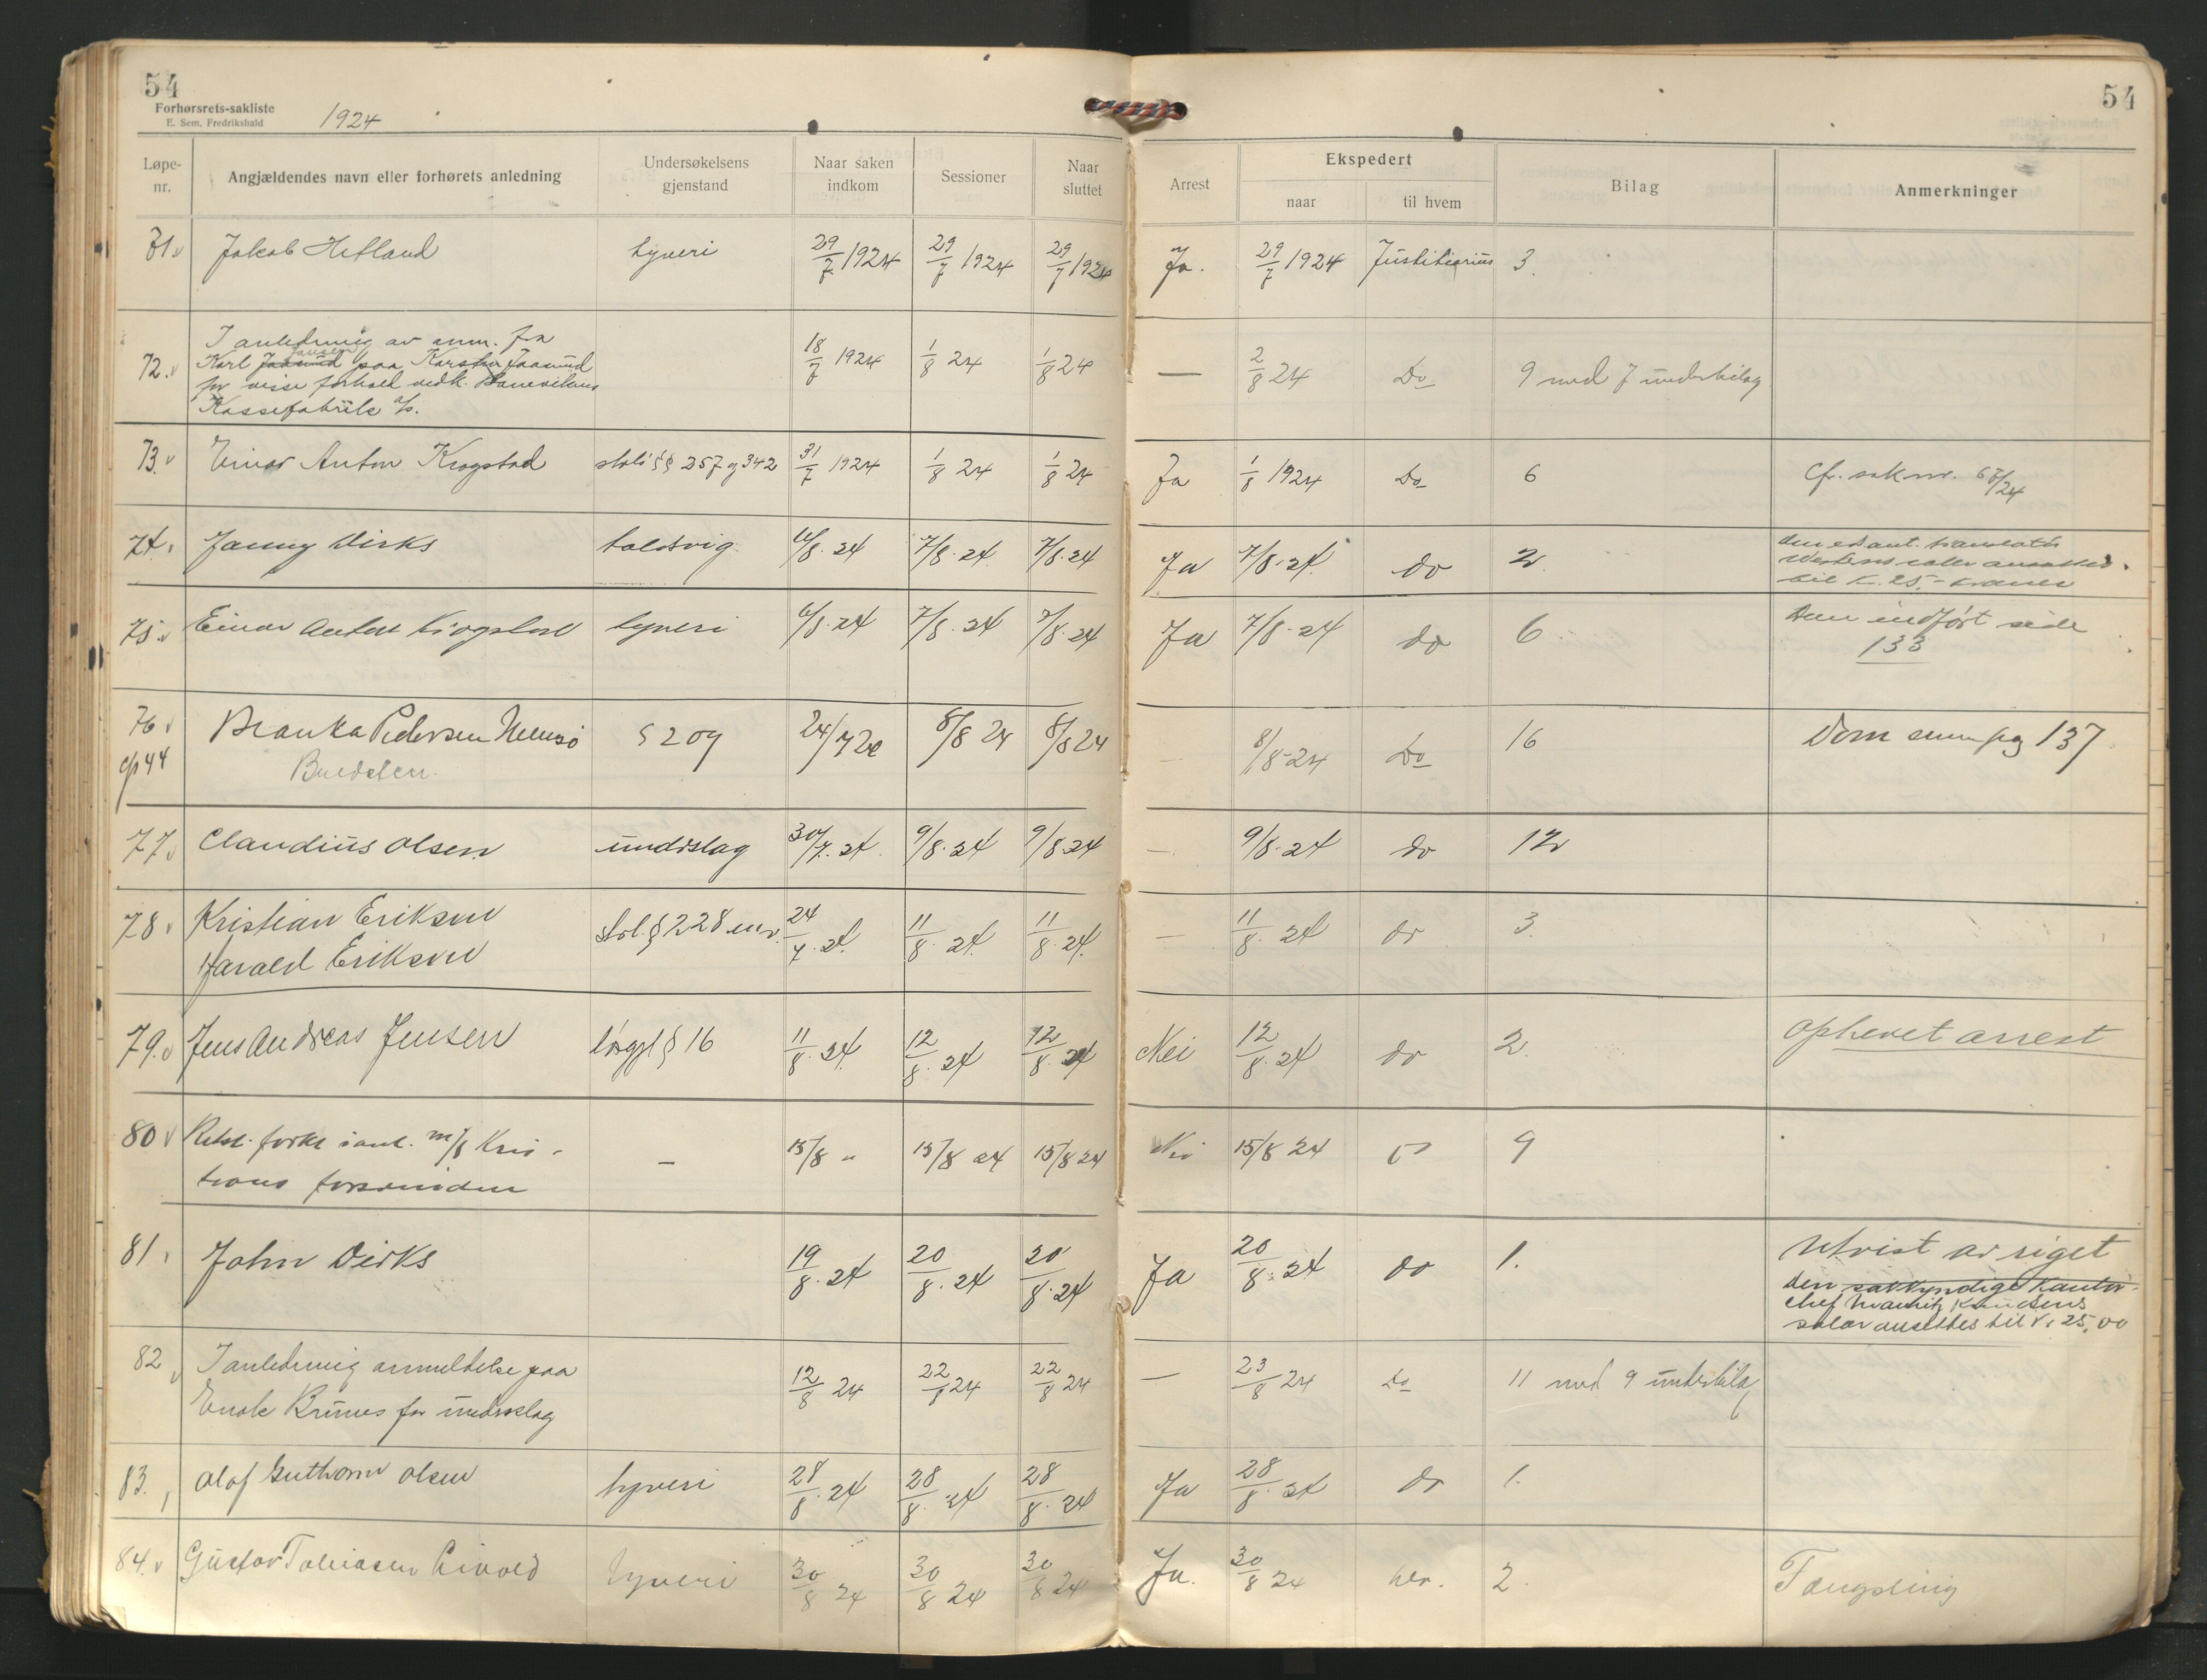 54
Forhørsrets-sakliste
E. Sem, Fredrikshald
1924
54
Løpe-nr.
Angjældendes navn eller forhørets anledning
Undersøkelsens gjenstand
Naar saken indkom
Sessioner
Naar sluttet
Arrest
Ekspedert
naar
til hvem
Bilag
Anmerkninger
71 v Jakob Hetland tyveri 29/7 1924 29/7 1924 29/7 1924 Ja. 29/7 1924 Justitiarius 3.
72. v I anledning av anm. fra
Karl Jaasund Jansen paa Karsten Jaasund
for visse forhold vedk.
Kassefabrik a/s.
18/7 1924 1/8 24 1/8 24 — 2/8 24 Do 9 med 7 underbilag
73. v Einar Anton Krogstad strl. §§ 257 og 342 31/7 1924 1/8 24 1/8 24 Ja 1/8 1924 Do 6 Cfr. sak nr. 67/24
74. Janny Dirks toldsvig. 6/8. 24 7/8. 24 7/8. 24 Ja 7/8. 24. do 2.
den ed. ant. translatør
salær ansattes
til kr. 25,- kroner
75. v Einar Anton Krogstad tyveri 6/8. 24 7/8. 24 7/8. 24 Ja 7/8. 24 do 6.
Dom indført side
133
76 v Pedersen § 209 24/7 24 8/8 24 8/8 24 — 8/8 24 Do 16 Dom pag 137
cfr 44
77. v Claudius Olsen underslag 30/7. 24 9/8. 24 9/8. 24 — 9/8. 24 do 12
78. v Kristian Eriksen
Harald Eriksen
strl § 228 24/7. 24. 11/8. 24. 11/8. 24. — 11/8. 24 do 3
79. v Jens Andreas Jensen løsgjl § 16 11/8. 24. 12/8. 24 12/8. 24 Nei 12/8. 24 do 2. Ophevet arrest
80 v Retsl. forkl. i anl. m/s Kris-
tians forsvinden
— 15/8 " 15/8 24 15/8 24 Nei 15/8 24 do 9
81. John Dirks 19/8. 24 20/8. 24 20/8. 24 Ja 20/8. 24 do 1.
Utvist av riget
Den sakkyndige kontor-
chef Knudsens
salær ansattes til kr. 25,00
82 v I anledning anmeldelse paa
Enok for underslag
12/8 24 22/8 24 22/8 24 — 23/8 24 Do 11 med 9 underbilag
83. Olaf Guthorm Olsen tyveri 28/8. 24 28/8. 24 28/8. 24 Ja 28/8. 24 do 1.
84. v Gustav Tobiasen Livold tyveri 30/8 24 30/8 24 30/8 24 Ja. 30/8 24 2. Fængsling